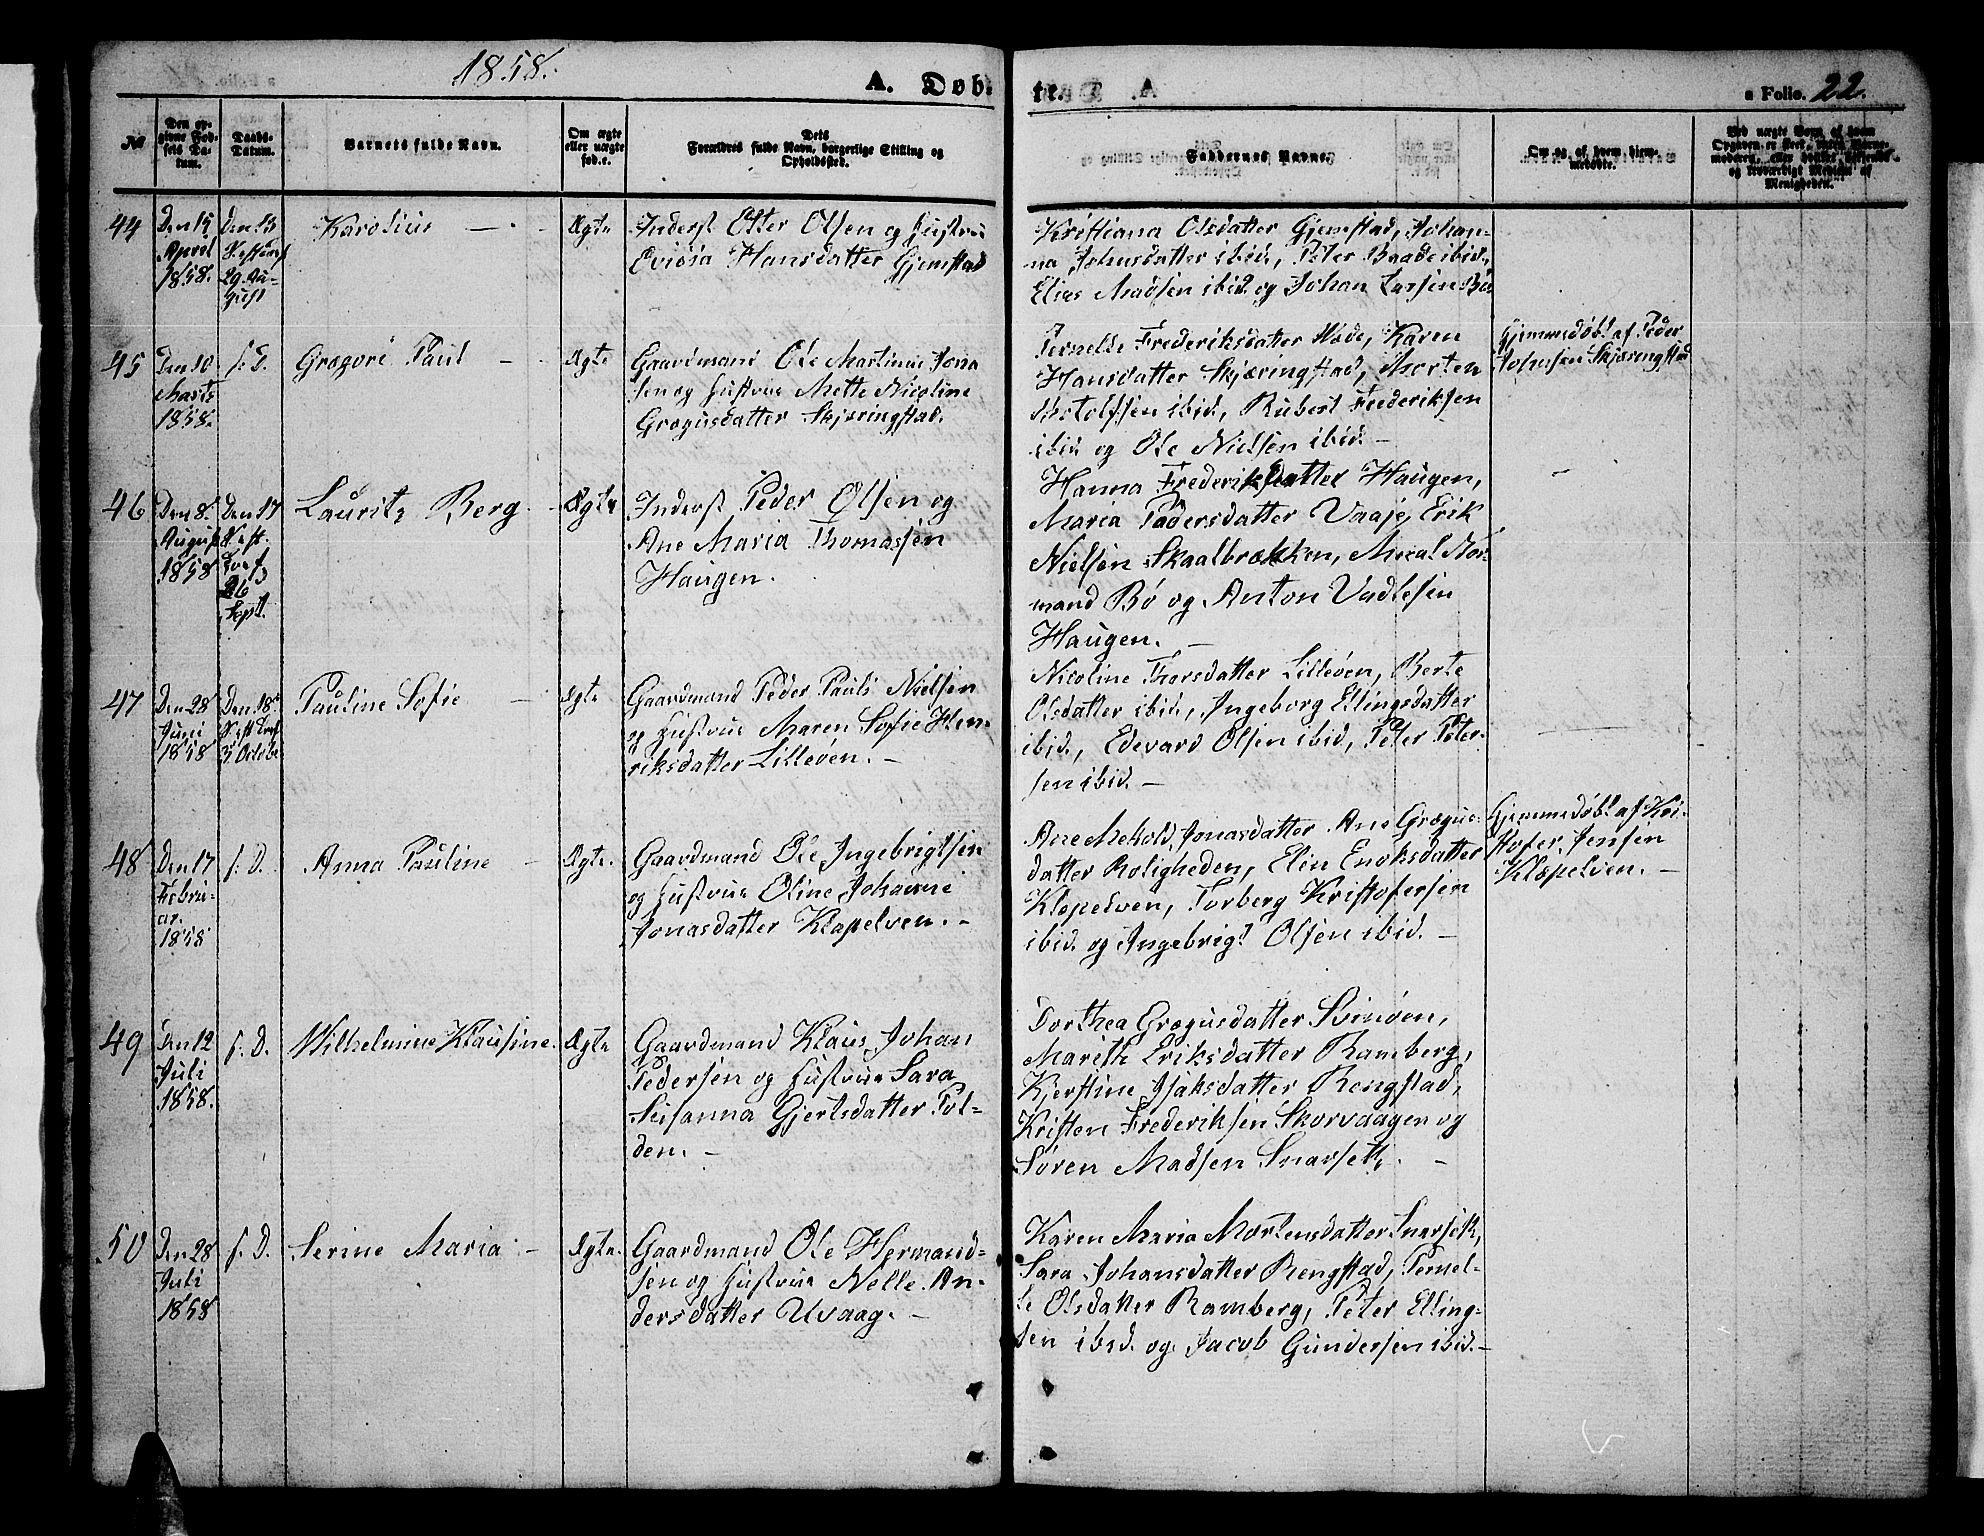 1858.
A. Døb-
te.
a Folio. 22.
No
Den op-
givne Fød-
sels Da-
tum.
Daabs-
Datum.
Barnets fulde Navn.
Om ægte
eller uægte
fød.e.
Dets
Forældres fulde Navn, borgerlige Stilling og
Opholdssted.
Faddernes Navne.
Om og af hvem hjem-
medøbte.
Ved uægte Børn af hvem
Opgaven er skeet, uden Barne-
moderen, eller hvilket bekjendt
og troværdigt Medlem af
Menigheden.
44
Den 15
April
1858.
Den 13
S. eft
29 Au-
gust
Karolius
Ægte
Inderst Etter Olsen og Hustrue
Eviosa Hansdatter Gjemstad
Kristiana Olsdatter Gjemstad, Johan-
na Johnsdatter ibid, Peter Baade ibid,
Elias Madsen ibid og Johan Larsen Bø
45
Den 10
Marts
1858.
s. D.
Gregori Paul
Ægte
Gaardmand Ole Martinus Jona
sen og Hustrue Mette Nicoline
Gregusdatter Skjæringstad.
Pernelle Frederiksdatter Hode, Karen
Hansdatter Skjæringstad, Morten
ibid, Rubert Frederiksen
ibid og Ole Nielsen ibid.
Hjemmedøbt af Peder
Johnsen Skjæringstad
46
Den 8.
August
1858
Den 17
S. eft.
Tref
26
Sept.
Lauritz Berg
Ægte
Inderst Peder Olsen og
Ane Maria Thomassen
Haugen.
Hanna Frederiksdatter Haugen,
Maria Pedersdatter Vaaje, Erik
Nielsen Skaalbrækken, Mical Nor-
mand Bø og Anton Vadlesen
Haugen. –
47
Den 28
Juni
1858
Den 18de
S. eft Tref
3 Octobr
Pauline Sofie
Ægte
Gaardmand Peder Pauli Nielsen
og Hustrue Maren Sofie Hen-
riksdatter Lilleøen. –
Nicoline Thorsdatter Lilleøen, Berte
Olsdatter ibid, Ingeborg Ellingsdatter
ibid, Edevard Olsen ibid, Peter Peter-
sen ibid. –
48
Den 17
Febru-
ar.
1858
s. D.
Anna Pauline
Ægte.
Gaardmand Ole Ingebrigtsen
og Hustrue Oline Johanne
Jonasdatter Klæpelven. –
Ane Mehold Jonasdatter Ane Gregus-
datter Roligheden, Elin Enoksdatter
Klepelven, Torberg Kristofersen
ibid. og Ingebrigt Olsen ibid. –
Hjemmedøbt af Kri-
stofer Jensen
Klæpelven. –
49
Den 12
Juli
1858.
s. D.
Wilhelmine Klausine.
Ægte
Gaardmand Klaus Johan
Pedersen og Hustrue Sara
Susanna Gjertsdatter Pol-
den. –
Dorthea Gregusdatter Svinøen,
Marith Eriksdatter Ramberg,
Kjerstine Isaksdatter Rengstad,
Kristen Frederiksen Skorvaagen og
Søren Madsen Snarseth. –
50
Den 28
Juli
1858
s. D.
Serine Maria –
Ægte.
Gaardmand Ole Hermand-
sen og Hustrue Nelle An-
dersdatter Uvaag. –
Karen Maria Mortensdatter Snarseth,
Sara Johansdatter Rengstad, Pernel-
le Olsdatter Ramberg, Peter Elling-
sen ibid. og Jacob Gundersen ibid. –